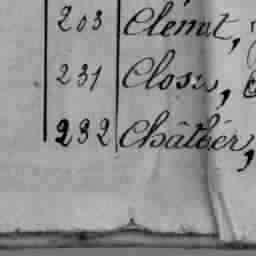 203 Clémat,
231 Closu,
232 Châtlier,